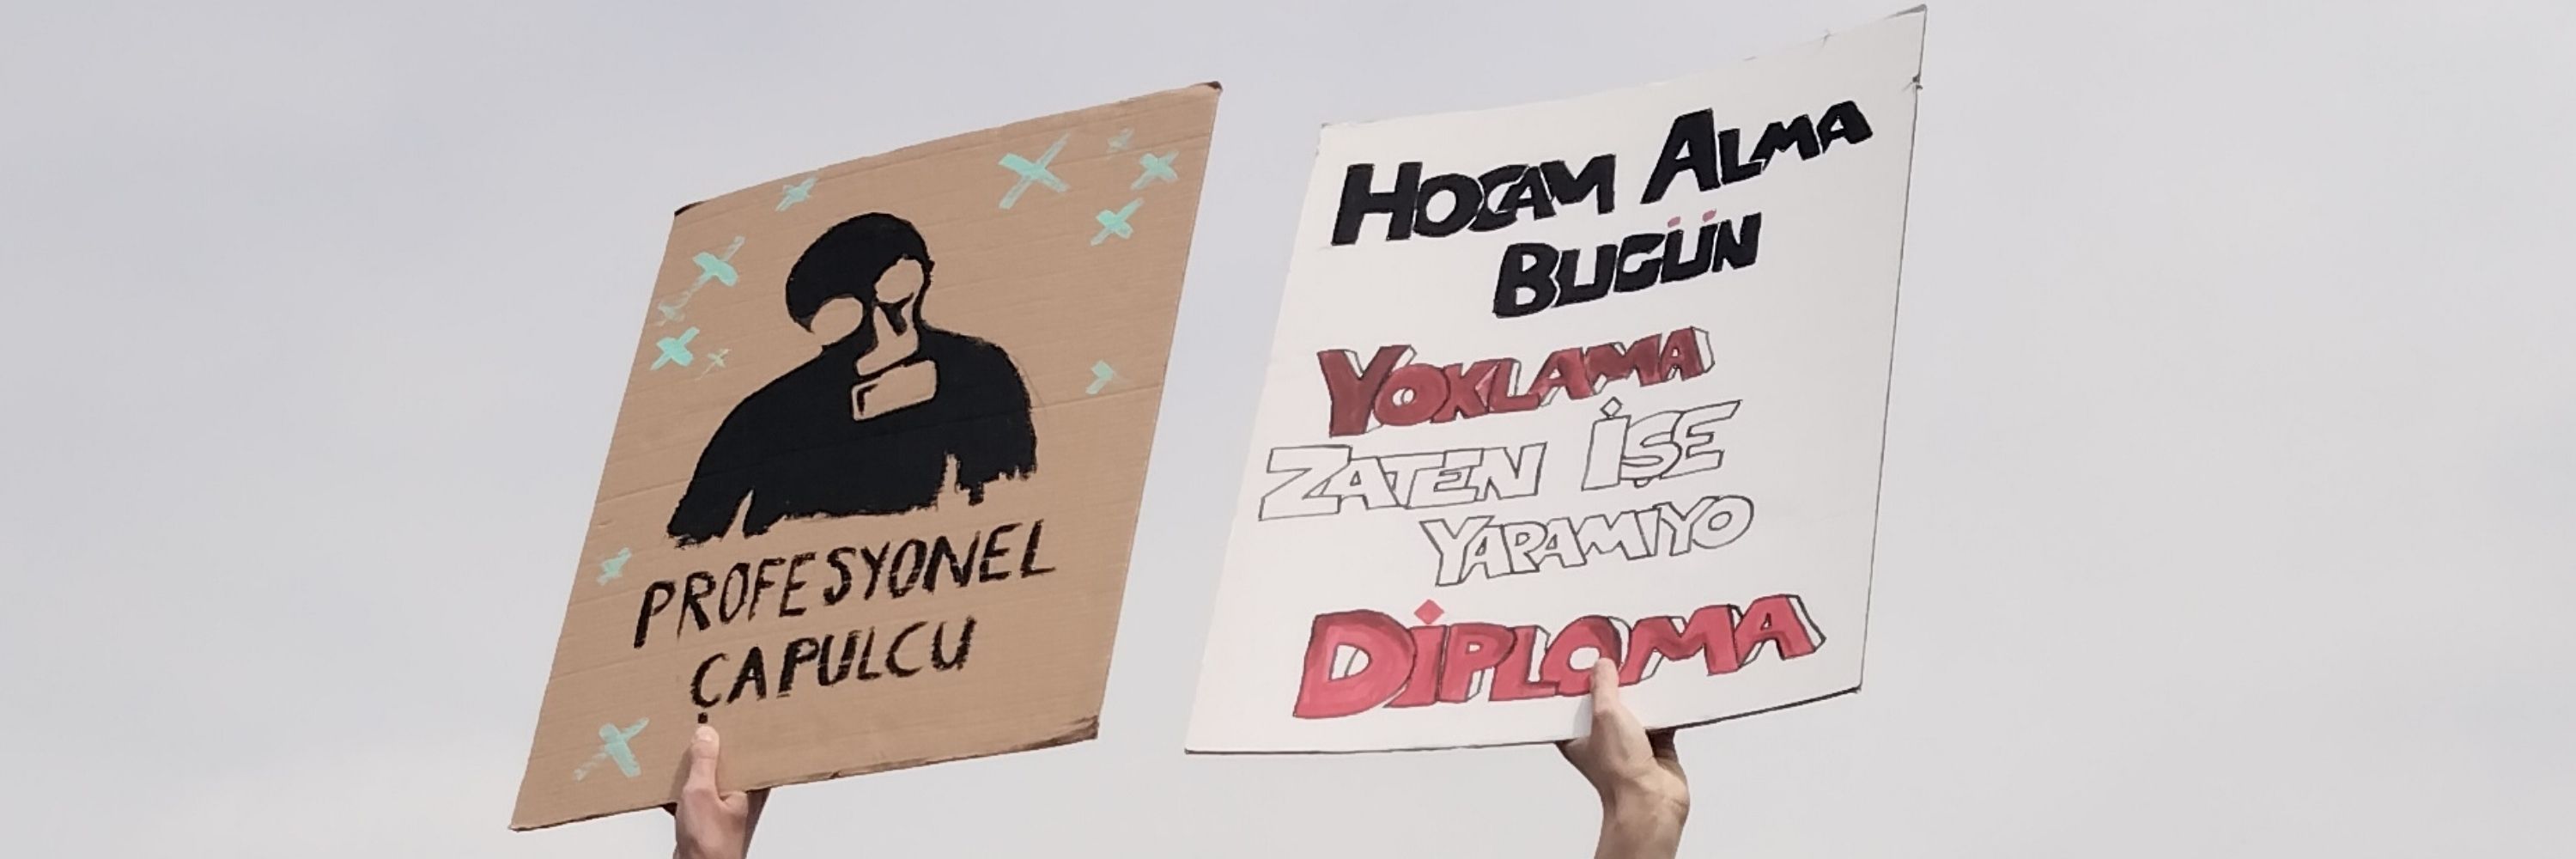 PROFESYONEL
ÇAPULCU
HOCAM ALMA
BUGÜN
YOKLAMA
ZATEN İŞE
YARAMIYO
DİPLOMA